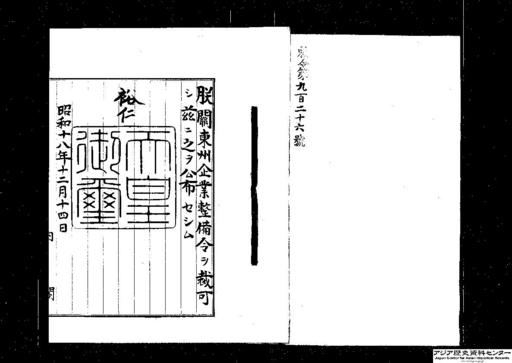 勅令第九百二十六號
朕關東州企業整備令ヲ裁可
シ茲ニ之ヲ公布セシム
裕仁
天皇御璽
昭和十八年十二月十四日
内閣
アジア歴史資料センター
Japan Center for Asian Historical Records